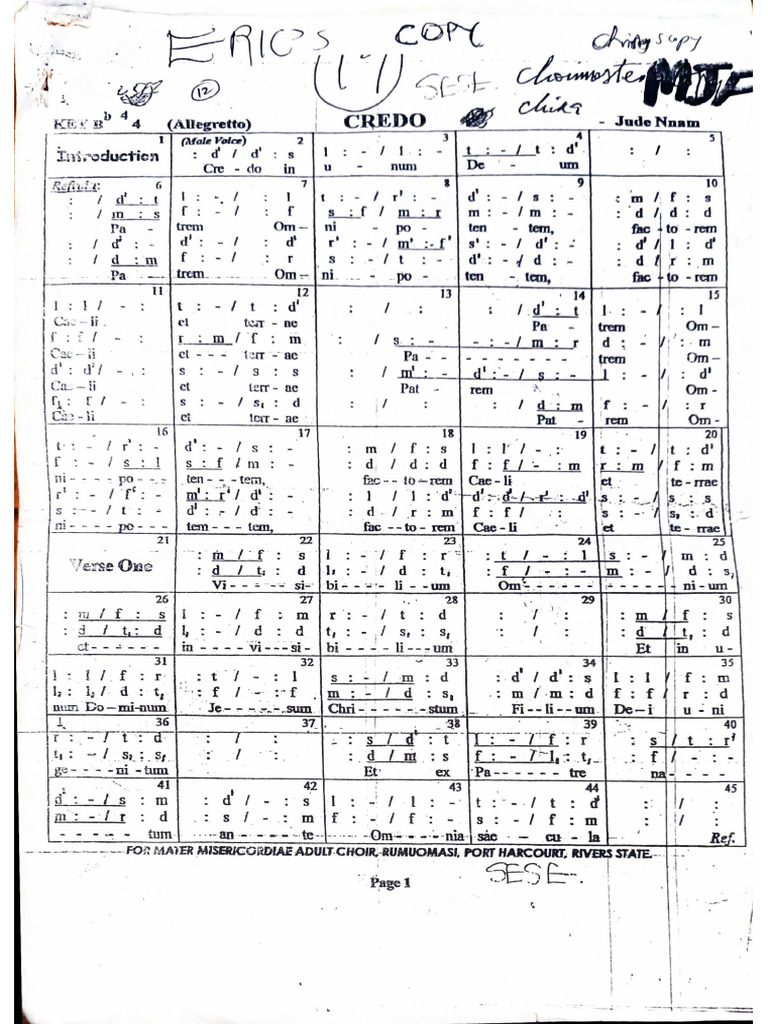 ERIC'S COPY
Choirmaster MJF
SESE
(17)
(12)
KEY Bb 4 4 (Allegretto) CREDO - Jude Nnam
1 2 3 4 5
Introduction (Male Voice)
: d' / d' : s l : - / l : - t : - / t : d' : / :
Cre - do in u - num De - um
Refrain: 6 7 8 9 10
: / d' : t l : - , / : l t : - / r' : - d' : - / s : - : m / f : s
: / m : s f : - / : f s : f / m : r m : - / m : - : d / d : d
Pa - trem Om - ni - po - ten - tem, fac - to - rem
: / d' : - d' : - / : d' r' : - / m' : - f' s' : - / d' : - : d' / l : d'
: / d : m f : - / : r s : - / t : - d' : - / d : - : d / r : m
Pa - trem Om - ni - po - ten - tem, fac - to - rem
11 12 13 14 15
l : l / - : t : - / t : d' : / : : / d' : t l : - / : l
Cae - li et terr - ae Pa - trem Om -
f : f / - : r : m / f : m : / s : - - : - / m : r d : - / : m
Cae - li et - - - terr - ae Pa - - - - - - - - - trem Om -
d' : d' / - : s : - / s : s : / m' : - d' : - / s : - l : - / : d'
Cae - li et terr - ae Pat - rem Om -
f₁ : f / - : s : - / s₁ : d : / : : / d : m f : - / : r
Cae - li et terr - ae Pat - rem Om -
16 17 18 19 20
t : - / r' : - d' : - / s : - : m / f : s l : l / - : t : - / t : d'
f : - / s : l s : f / m : - : d / d : d f : f / - : m r : m / f : m
ni - - - po - - - ten - - tem, fac - - to - rem Cae - li et te - rrae
r' : - / f' : - m' : r' / d' : - : l / l : d' d' : d' - r' : d' s : - / s : s
s : - / t : - d' : - / d : - : d / r : m f : f / - : s : - / s₁ : d
ni - - - po - - - tem - - - tem, fac - - to - rem Cae - li et te - rrae
21 22 23 24 25
Verse One : m / f : s l : - / f : r : t / - : l s : - / m : d
: d / t₁ : d l₁ : - / d : t₁ : f / - : - m : - / d : s₁
Vi - - - - si- bi - - - - li - - um Om - - - - - - - ni - um
26 27 28 29 30
: m / f : s l : - / f : m r : - / t : d : / : : m / f : s
: d / t₁ : d l₁ : - / d : d t₁ : - / s₁ : s₁ : / : : d / t₁ : d
et - - - - - - in - - - vi - - si - bi - - - - li - - - um Et in u -
31 32 33 34 35
l : l / f : r : t / - : l s : - / m : d : d' / d' : s l : l / f : m
l₁ : l₁ / d : t₁ : f / - : f m : - / d : s₁ : m / m : d f : f / r : d
num Do - mi - num Je - - - - sum Chri - - - - - - - stum Fi - li - um De - i u - ni
36 37 38 39 40
r : - / t : d : / : : s / d' : t l : - / f : r : s / t : r'
t₁ : - / s₁ : s₁ : / : : d / m : s f : - / l₁ : t₁ : f / - : -
ge - - - - ni - tum Et ex Pa - - - - - - tre na - - - - -
41 42 43 44 45
d' : - / s : m : d' / - : s l : - / l : - t : - / t : d' : / :
m : - / r : d : s / - : m f : - / f : - s : - / f : m : / :
- - - - - tum an - - - - - te Om - - - - - nia sae - cu - la Ref.
FOR MATER MISERICORDIAE ADULT CHOIR, RUMUOMASI, PORT HARCOURT, RIVERS STATE.
SESE
Page 1